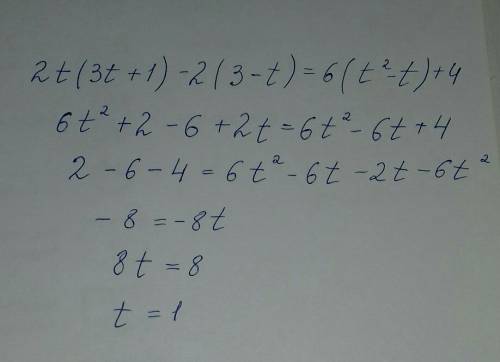 2t(3t+1)-2(3-t)=6(t²-t)+4
6t²+2-6+2t=6t²-6t+4
2-6-4=6t²-6t-2t-6t²
-8=-8t
8t=8
t=1